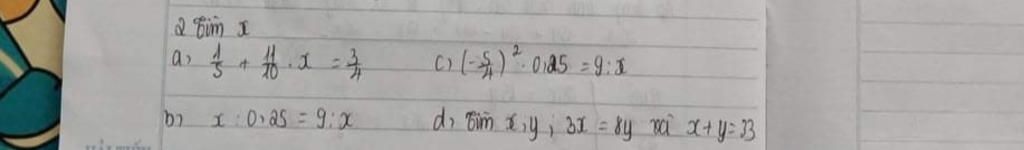 2 Tìm x
a, 1/5 + 11/10 . x = 3/4 c, (-5/4)² . 0,25 = 9 : x
b, x : 0,25 = 9 : x d, Tìm x, y ; 3x = 8y và x + y = 33